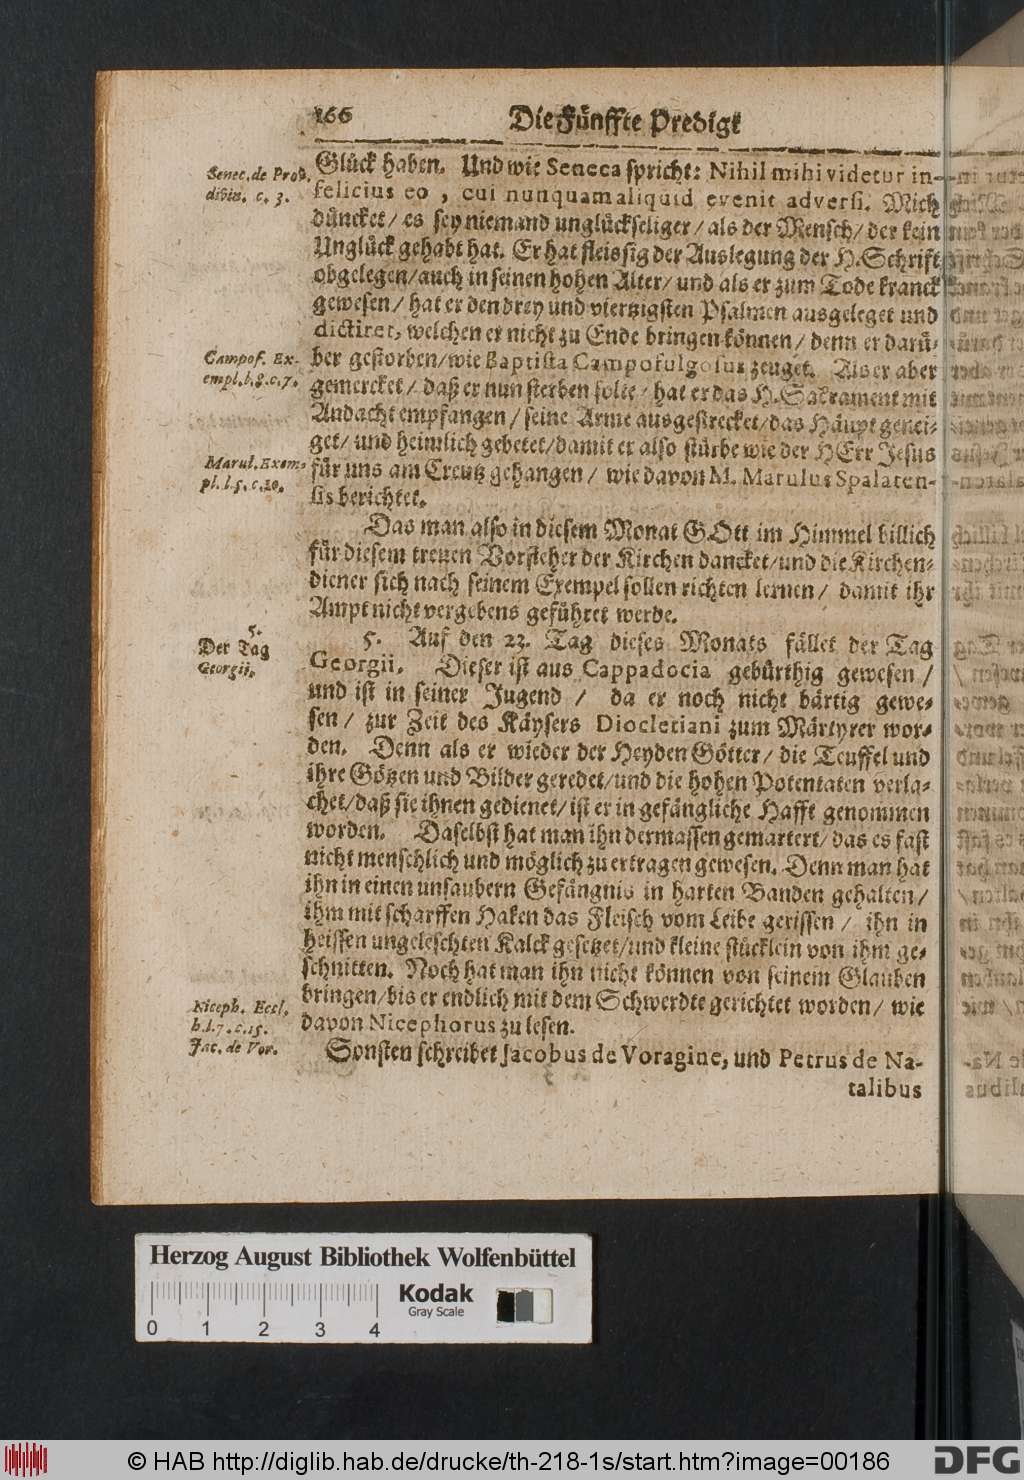 166 Die Fünffte Predigt
Glück haben. Und wie Seneca spricht: Nihil mihi videtur in-
felicius eo, cui nunquam aliquid evenit adversi. Mich
düncket/ es sey niemand unglückseliger/ als der Mensch/ der kein
Unglück gehabt hat. Er hat fleissig der Auslegung der H. Schrifft
obgelegen/ auch in seinen hohen Alter/ und als er zum Tode kranck
gewesen/ hat er den drey und viertzigsten Psalmen ausgeleget und
dictiret, welchen er nicht zu Ende bringen können/ denn er darü-
ber gestorben/ wie Baptista Campofulgosus zeuget. Als er aber
gemercket/ daß er nun sterben solte/ hat er das H. Sacrament mit
Andacht empfangen/ seine Arme ausgestrecket/ das Häupt genei-
get/ und heimlich gebetet/ damit er also stürbe wie der HErr Jesus
für uns am Creutz gehangen/ wie davon M. Marulus Spalaten-
sis berichtet.
Senec. de Prov.
divin. c. 3.
Campof. Ex-
empl. l. 8. c. 7.
Marul. Exem-
pl. l. 5. c. 10.
Das man also in diesem Monat GOtt im Himmel billich
für diesem treuen Vorsteher der Kirchen dancket/ und die Kirchen-
diener sich nach seinem Exempel sollen richten lernen/ damit ihr
Ampt nicht vergebens geführet werde.
5.
Der Tag
Georgii.
5. Auf den 23. Tag dieses Monats fället der Tag
Georgii. Dieser ist aus Cappadocia gebürthig gewesen/
und ist in seiner Jugend/ da er noch nicht bärtig gewe-
sen/ zur Zeit des Käysers Diocletiani zum Märtyrer wor-
den. Denn als er wieder der Heyden Götter/ die Teuffel und
ihre Götzen und Bilder geredet/ und die hohen Potentaten verla-
chet/ daß sie ihnen gedienet/ ist er in gefängliche Hafft genommen
worden. Daselbst hat man ihn dermassen gemartert/ das es fast
nicht menschlich und möglich zu ertragen gewesen. Denn man hat
ihn in einen unsaubern Gefängnis in harten Banden gehalten/
ihm mit scharffen Haken das Fleisch vom Leibe gerissen/ ihn in
heissen ungeleschten Kalck gesetzet/ und kleine stücklein von ihm ge-
schnitten. Noch hat man ihn nicht können von seinem Glauben
bringen/ bis er endlich mit dem Schwerdte gerichtet worden/ wie
davon Nicephorus zu lesen.
Niceph. Eccl.
h. l. 7. c. 15.
Jac. de Vor.
Sonsten schreibet Jacobus de Voragine, und Petrus de Na-
talibus
Herzog August Bibliothek Wolfenbüttel
Kodak
Gray Scale
0 1 2 3 4
© HAB http://diglib.hab.de/drucke/th-218-1s/start.htm?image=00186
DFG